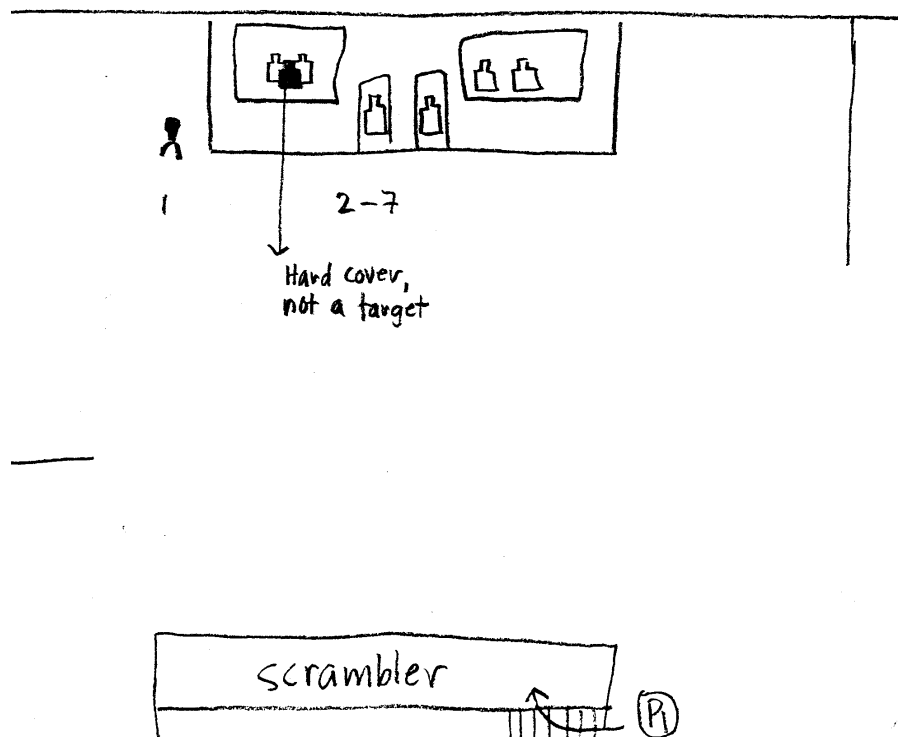 1
2-7
Hard cover,
not a target
scrambler
P1